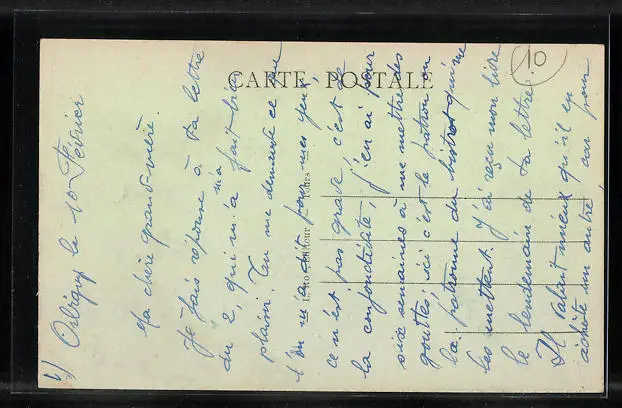 1) Orbigny le 10 Février
Ma chère grand-mère.
Je fais réponse à ta lettre
du 2, qui m'a fait bien
plaisir. Tu me demande ce que
l'on m'a dit pour mes yeux,
ce n'est pas grave, c'est de
la conjonctivite, j'en ai pour
six semaines à me mettre des
gouttes, ici c'est le patron ou
la patronne du bistrot qui me
les mettent. J'ai reçu mon livre
le lendemain de ta lettre.
Il valait mieux qu'il en
achète un autre, car pour
CARTE POSTALE
10
Tours